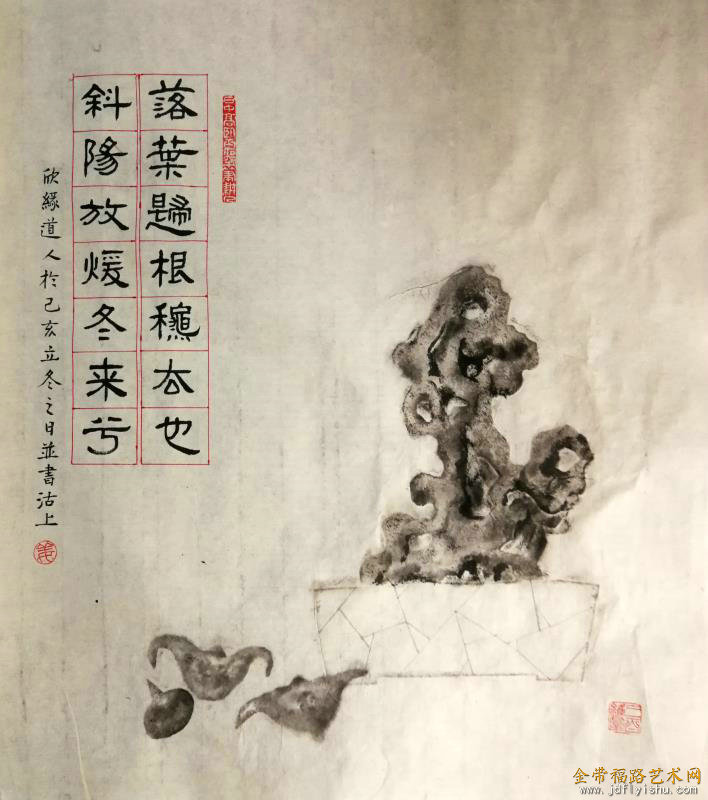 落葉歸根穐厺也
斜陽放煖冬来兮
欣緣道人於己亥立冬之日並書沽上
金带福路艺术网
www.jdflyishu.com